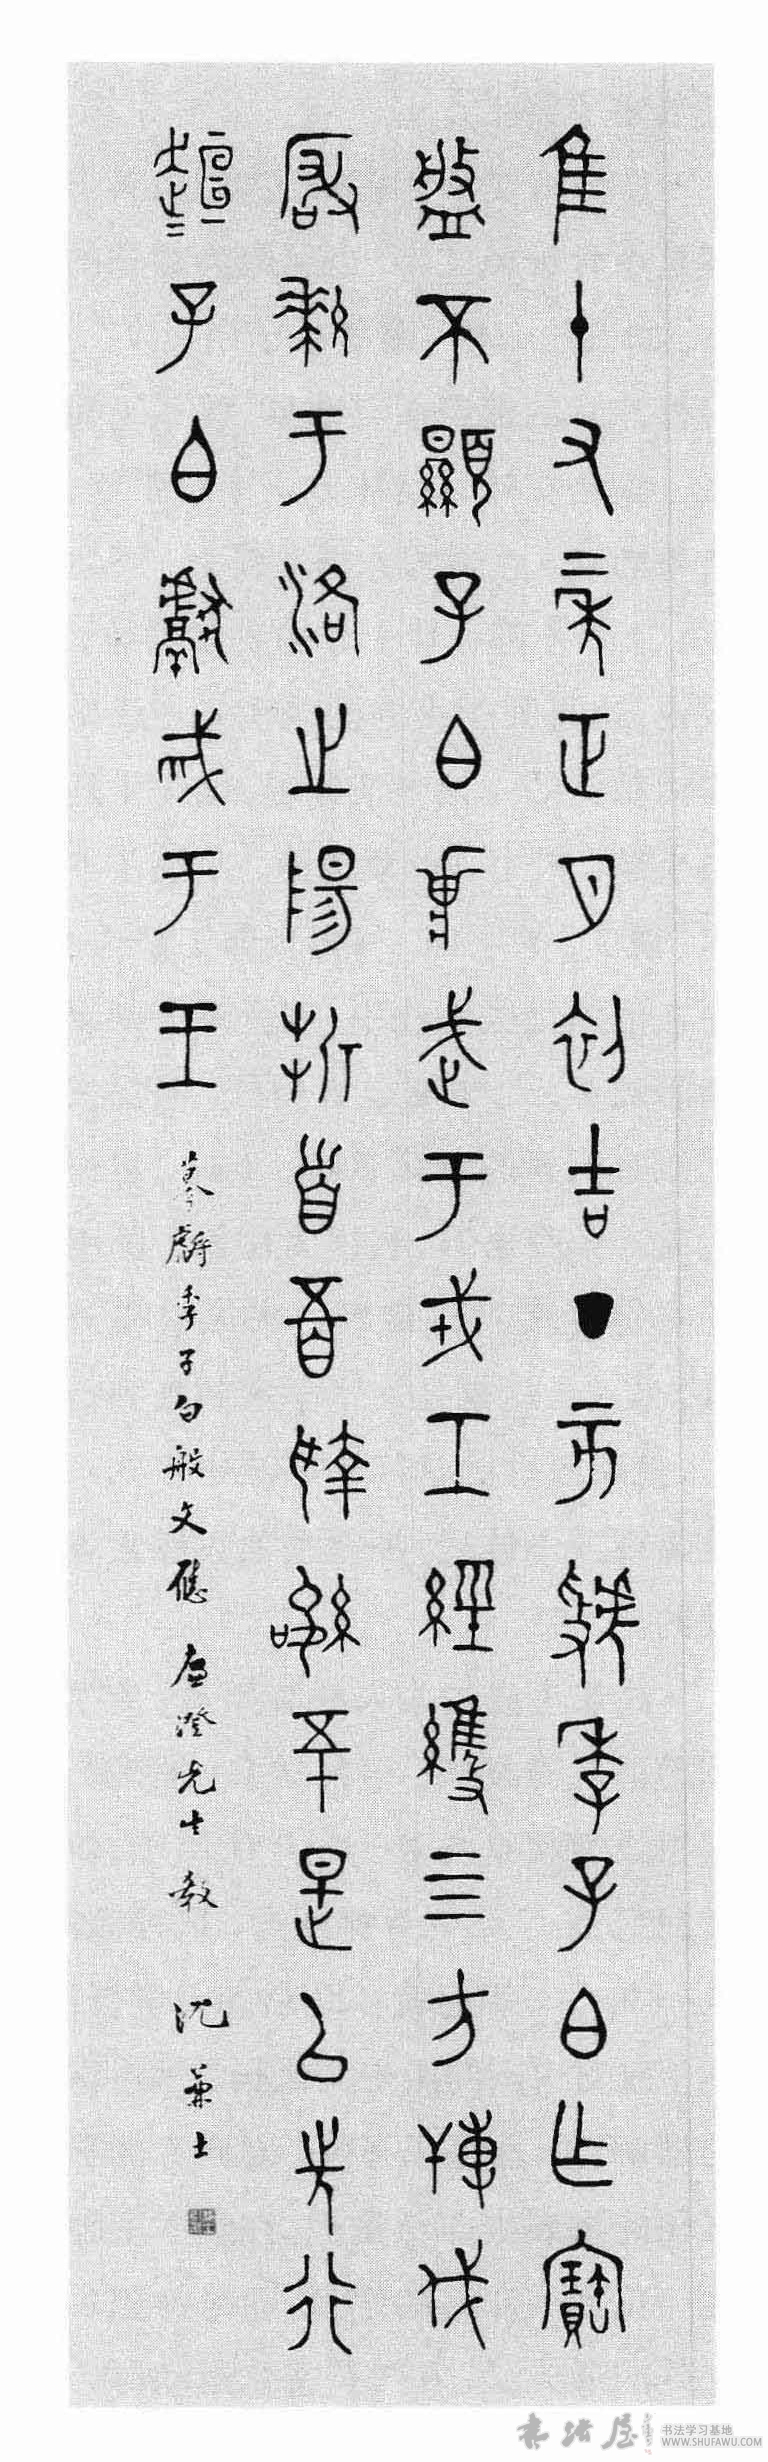 隹十又二年正月初吉丁亥虢季子白乍寶
盤不顯子白𩛥武于戎工經維三方搏伐
玁狁于洛之陽折首五百執訊五十是以先行
趄=子白獻戒于王
摹虢季子白般文應廬澄先生教 沈兼士
書法屋 书法学习基地
WWW.SHUFAWU.COM